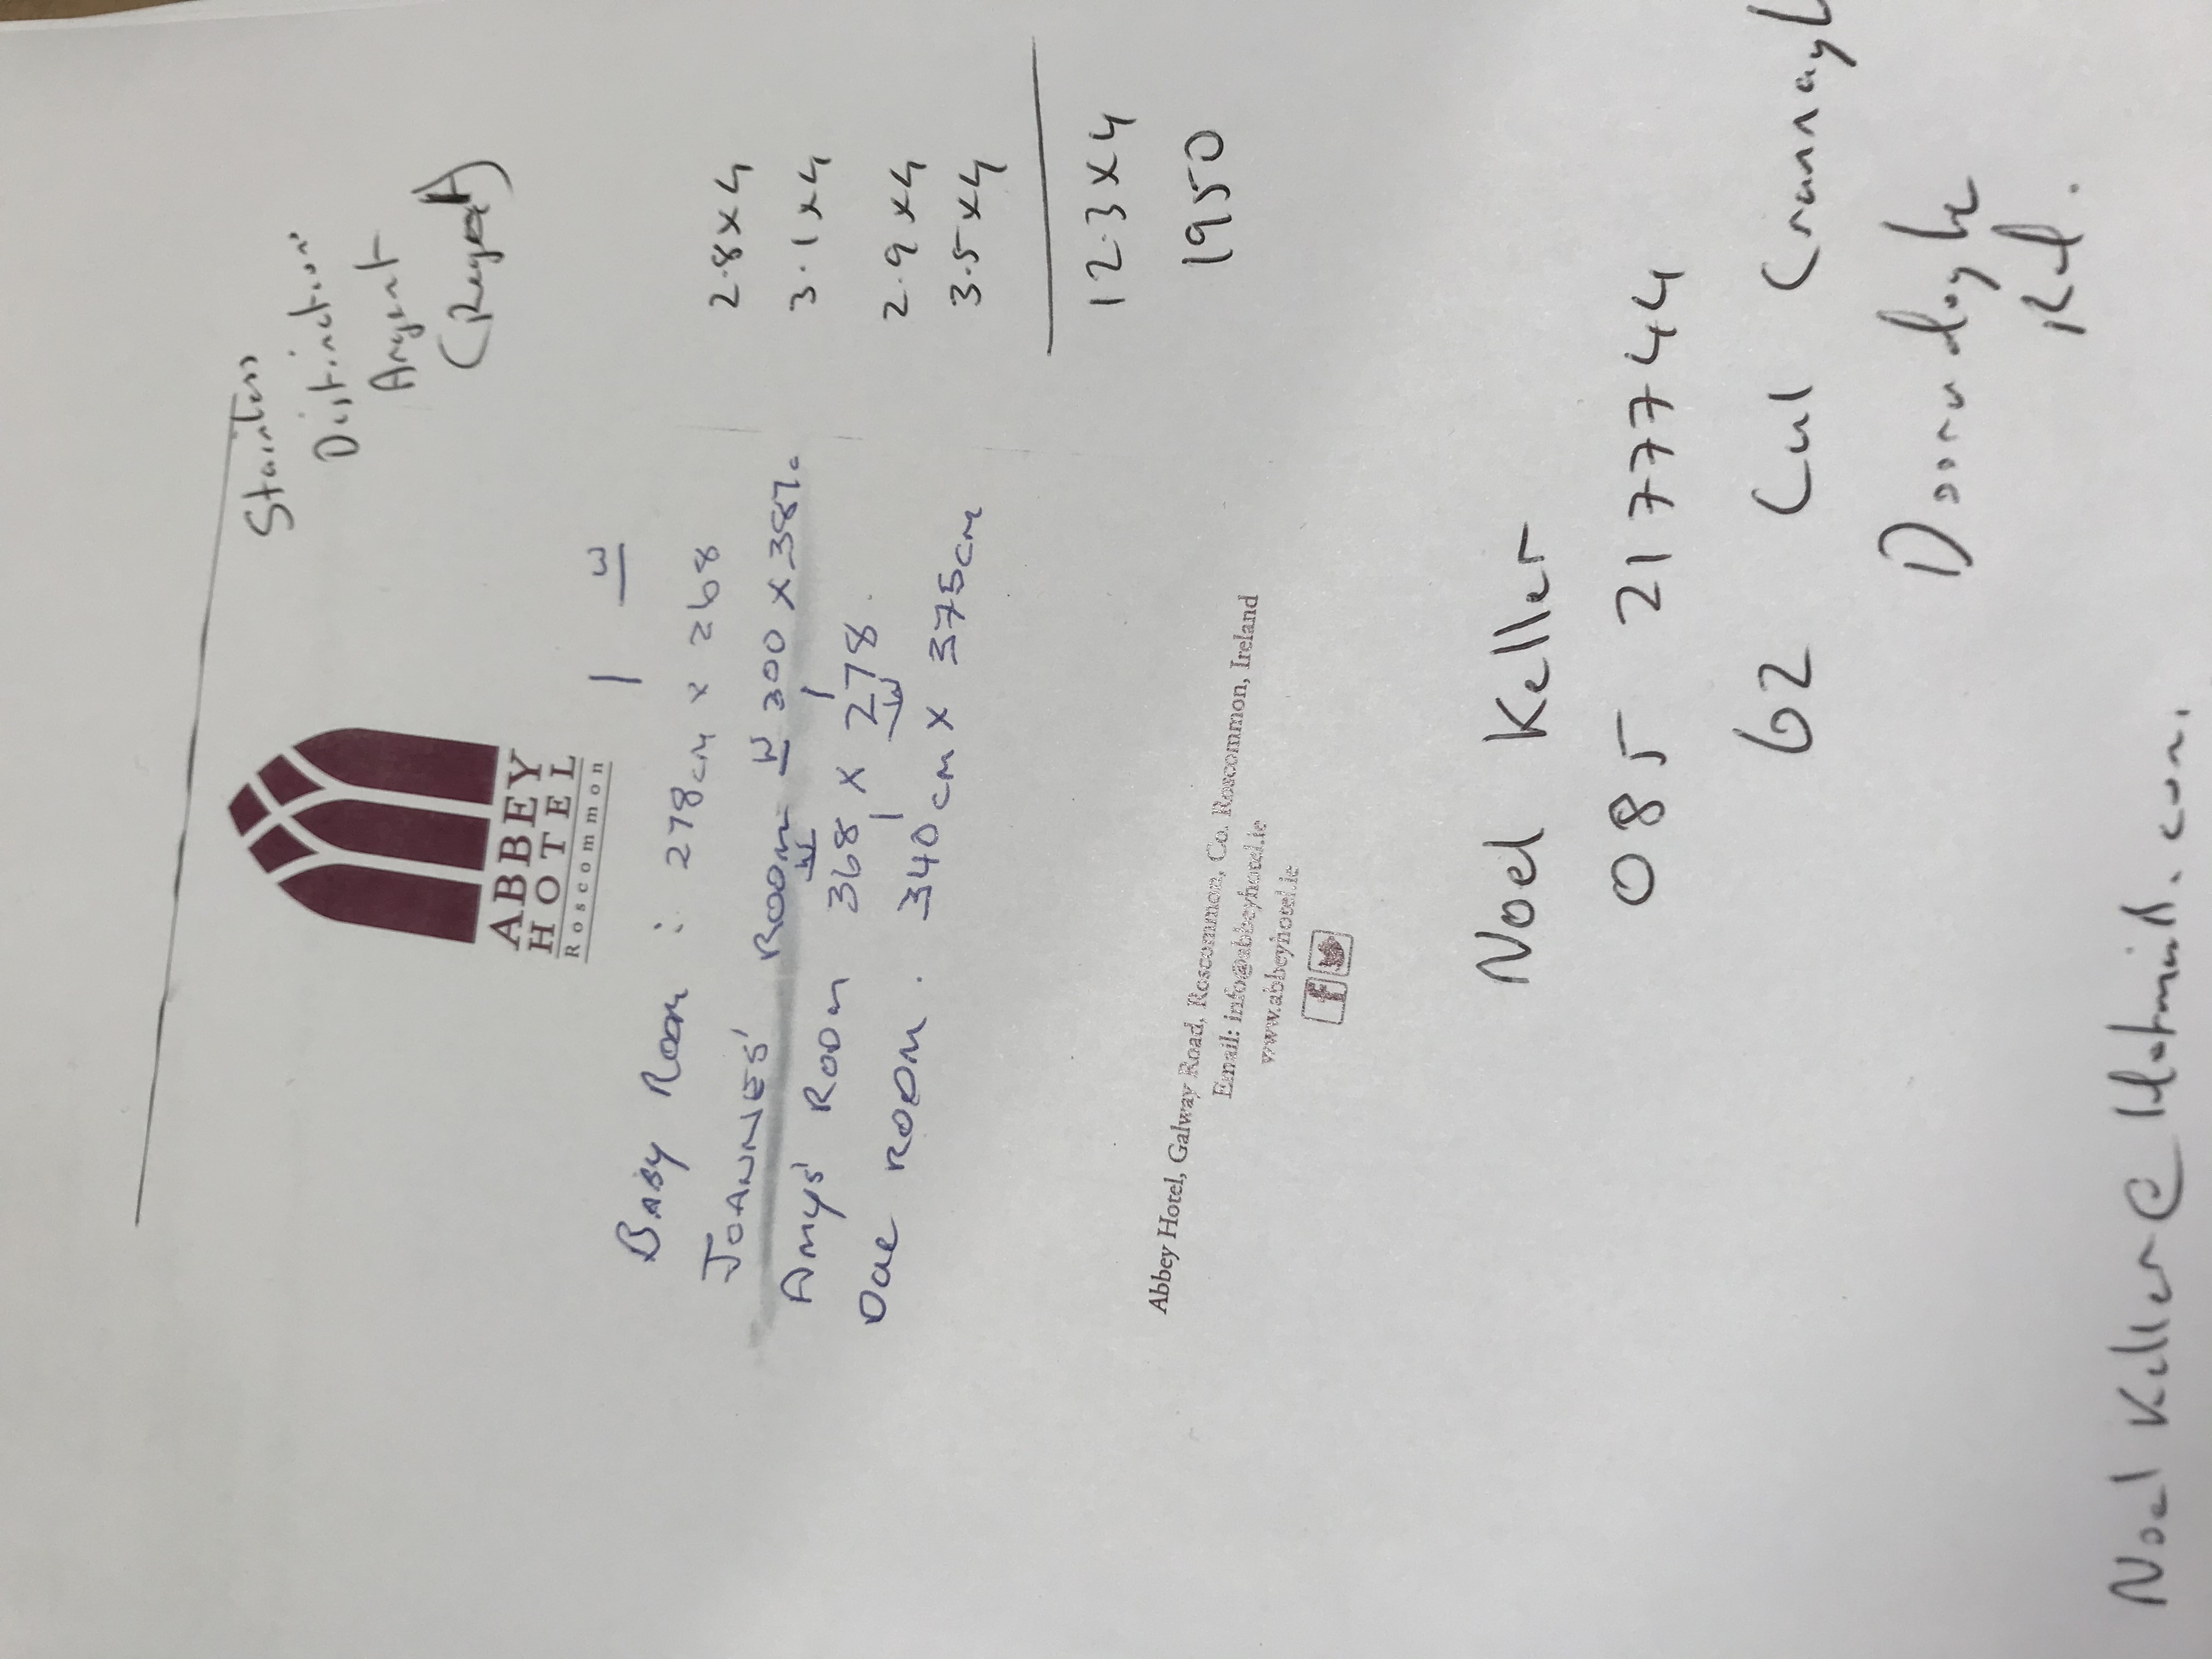 Stainless
Distinction
Argent
ABBEY
HOTEL
Roscommon
L W
BABY Room : 278cm x 268
JOANNES' ROOM W 300 x 387.
Amys' Room 368 x 278.
W L
Our ROOM. 340cm x 375cm
L W
2.8x4
3.1x4
2.9x4
3.5x4
12.3x4
1950
Abbey Hotel, Galway Road, Roscommon, Co. Roscommon, Ireland
Email: info@abbeyhotel.ie
www.abbeyhotel.ie
Noel Keller
085 2177744
62 Cul
Rd.
Noel Keller@Hotmail.com.